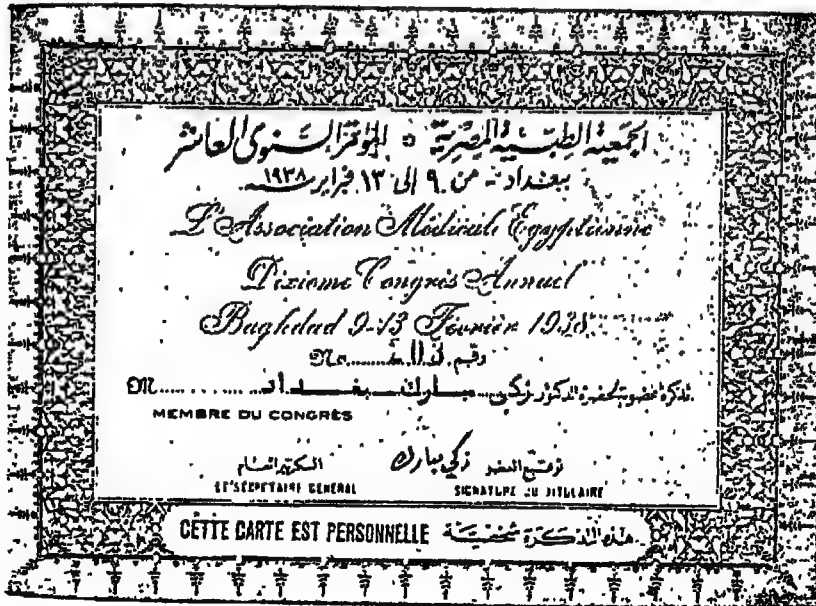 الجمعية الطبية المصرية * المؤتمر السنوي العاشر
ببغداد من ٩ الى ١٣ فبراير سنة ١٩٣٨
L'Association Médicale Egyptienne
Dixième Congrès Annuel
Baghdad 9-13 Février 1938
No. رقم
M. تذكرة عضوية لحضرة الدكتور زكي مبارك بغداد
MEMBRE DU CONGRÈS
توقيع العضو زكي مبارك السكرتير العام
LE SECRETAIRE GENERAL SIGNATURE DU TITULAIRE
CETTE CARTE EST PERSONNELLE هذه التذكرة شخصية